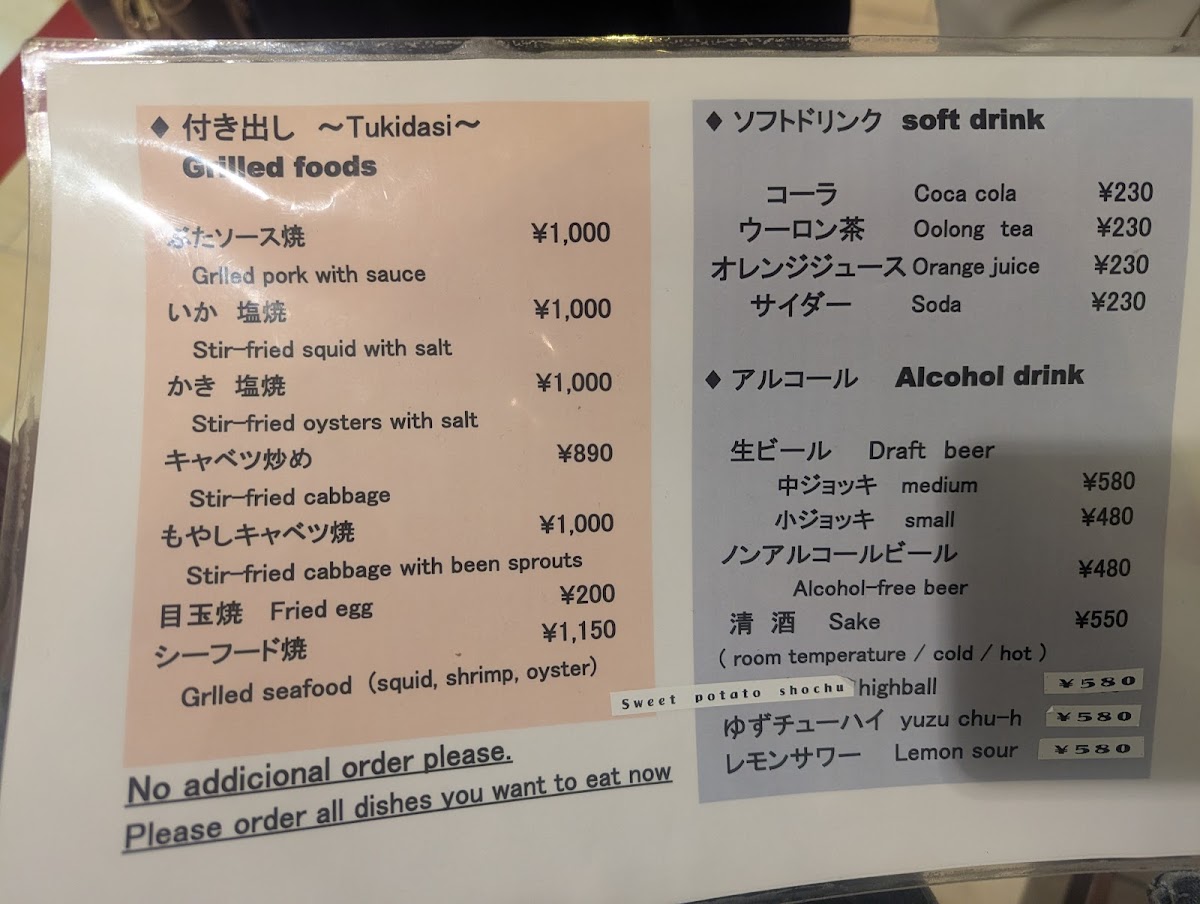 ◆ 付き出し ～Tukidasi～
Grilled foods
ぶたソース焼 ¥1,000
Grlled pork with sauce
いか 塩焼 ¥1,000
Stir-fried squid with salt
かき 塩焼 ¥1,000
Stir-fried oysters with salt
キャベツ炒め ¥890
Stir-fried cabbage
もやしキャベツ焼 ¥1,000
Stir-fried cabbage with been sprouts
目玉焼 Fried egg ¥200
シーフード焼 ¥1,150
Grlled seafood (squid, shrimp, oyster)
No addicional order please.
Please order all dishes you want to eat now
◆ ソフトドリンク soft drink
コーラ Coca cola ¥230
ウーロン茶 Oolong tea ¥230
オレンジジュース Orange juice ¥230
サイダー Soda ¥230
◆ アルコール Alcohol drink
生ビール Draft beer
中ジョッキ medium ¥580
小ジョッキ small ¥480
ノンアルコールビール ¥480
Alcohol-free beer
清 酒 Sake ¥550
( room temperature / cold / hot )
Sweet potato shochu highball ¥580
ゆずチューハイ yuzu chu-h ¥580
レモンサワー Lemon sour ¥580